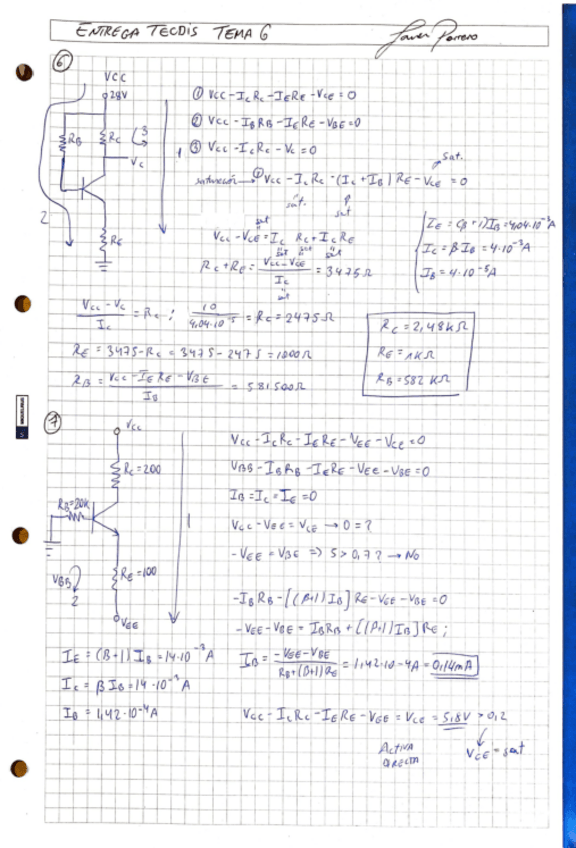 ENTREGA TECDIS TEMA 6
6
VCC
28V
RB
RC
3
VC
1
2
RE
① VCC - IC RC - IE RE - VCE = 0
② VCC - IB RB - IE RE - VBE = 0
③ VCC - IC RC - VC = 0
saturación → ① VCC - IC RC - (IC + IB) RE - VCE = 0
sat.
sat.
sat
VCC - VCE = IC RC + IC RE
sat
sat sat sat
RC + RE = (VCC - VCE) / IC = 3475 Ω
sat
IE = (β+1) IB = 4,04·10⁻³ A
IC = β IB = 4·10⁻³ A
IB = 4·10⁻⁵ A
(VCC - VC) / IC = RC ; 10 / 4,04·10⁻³ = RC = 2475 Ω
RE = 3475 - RC = 3475 - 2475 = 1000 Ω
RB = (VCC - IE RE - VBE) / IB = 581500 Ω
RC = 2,48 KΩ
RE = 1 KΩ
RB = 582 KΩ
7
VCC
RC = 200
RB = 20K
1
RE = 100
VBB
2
VEE
VCC - IC RC - IE RE - VEE - VCE = 0
VBB - IB RB - IE RE - VEE - VBE = 0
IB = IC = IE = 0
VCC - VEE = VCE → 0 = ?
- VEE = VBE => 5 > 0,7 ? → No
- IB RB - [(β+1) IB] RE - VEE - VBE = 0
- VEE - VBE = IB RB + [(β+1) IB] RE ;
IB = (- VEE - VBE) / (RB + (β+1) RE) = 1,42·10 - 4A = 0,14mA
IE = (β+1) IB = 14·10⁻³ A
IC = β IB = 14·10⁻³ A
IB = 1,42·10⁻⁴ A
VCC - IC RC - IE RE - VEE = VCE = 5,8V > 0,2
VCE = sat
ACTIVA
DIRECTA